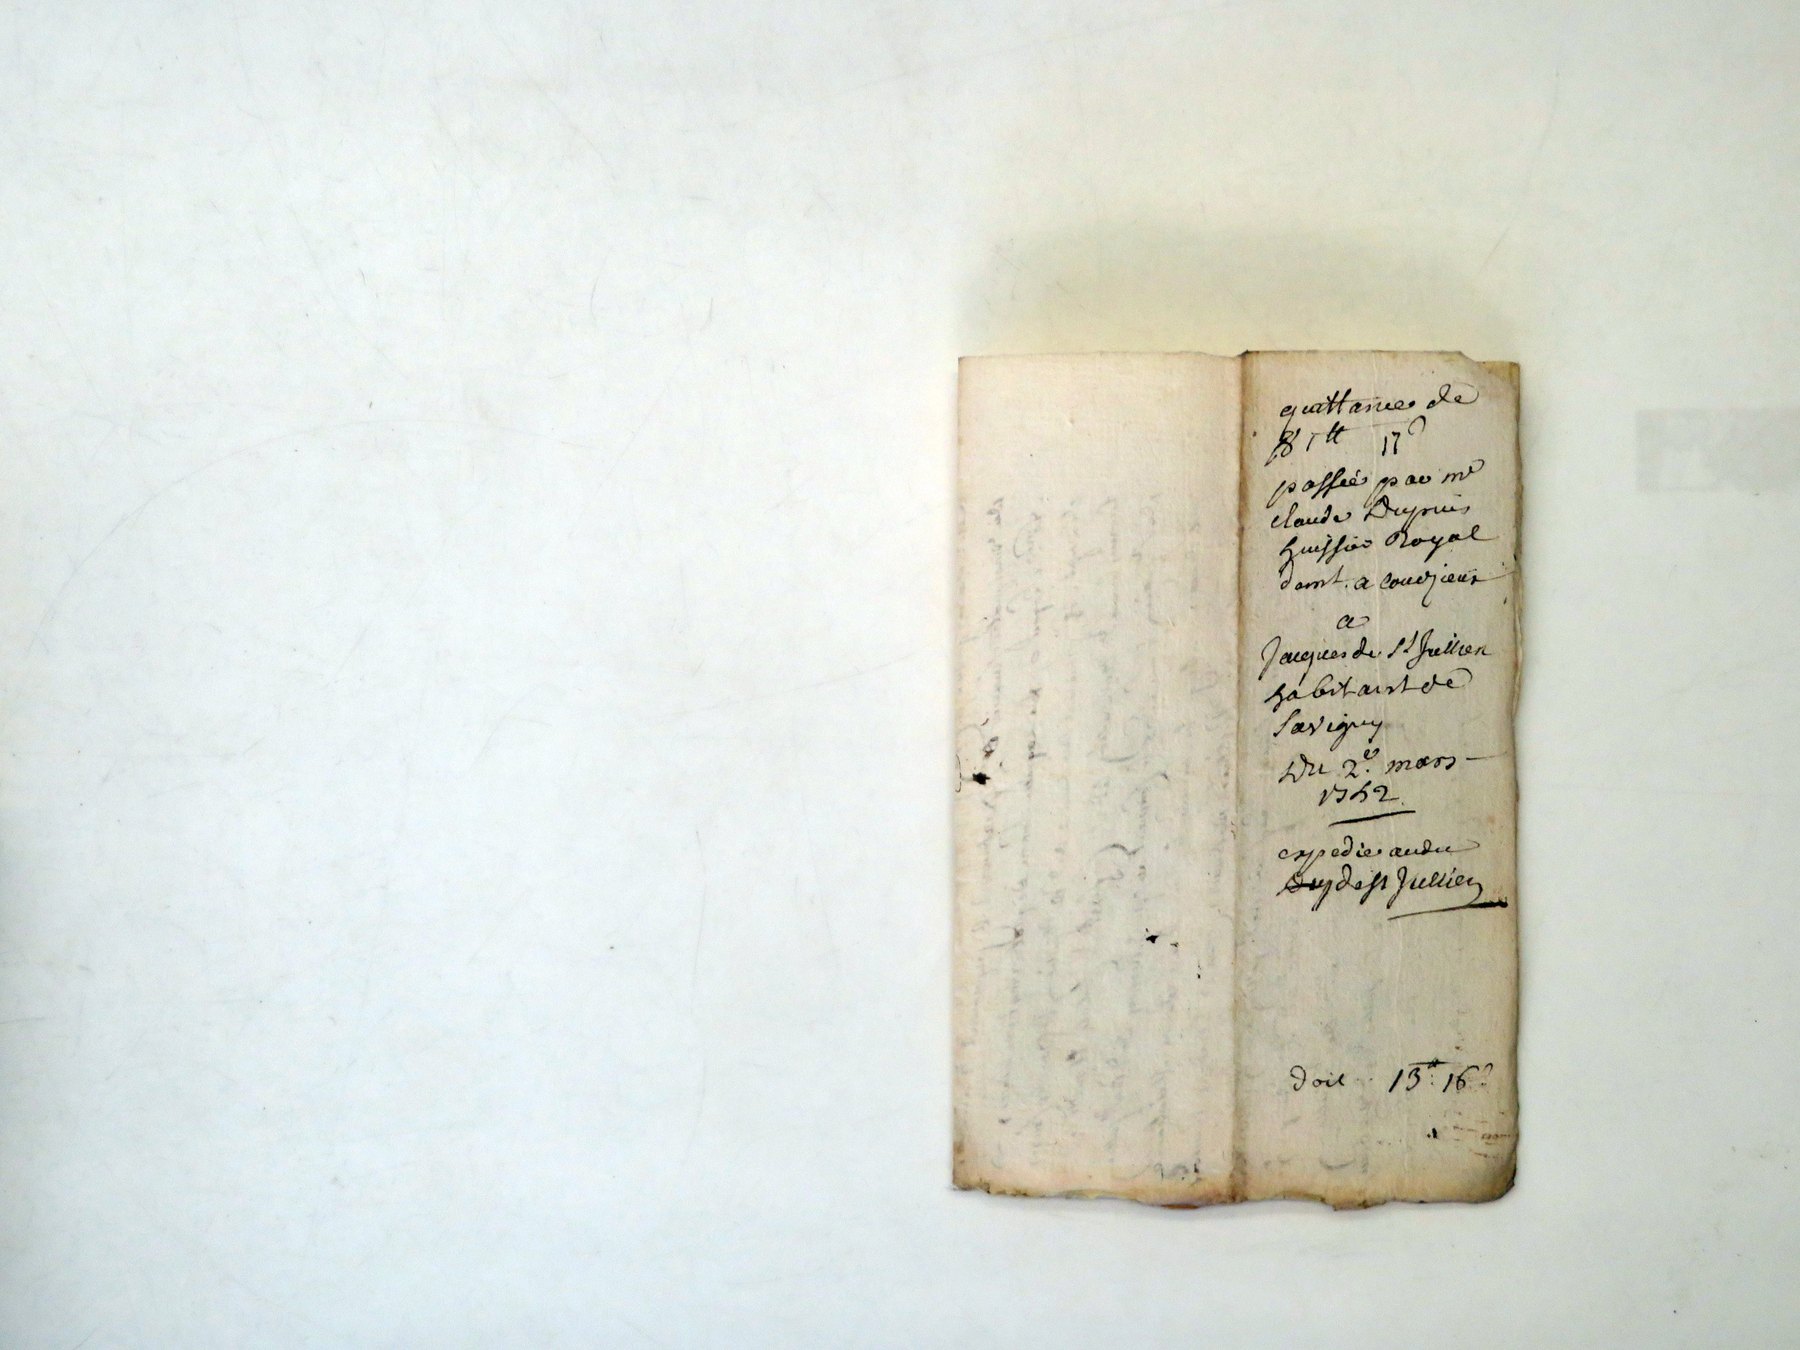 quittance de
81tt 17s
passée par me
claude Dupuis
huissier Royal
demt. a courzieux
a
Jacques de St Jullien
habitant de
Savigny
Du 2e. mars
1742
expedié audit
de St Jullien
doit 13tt. 16s